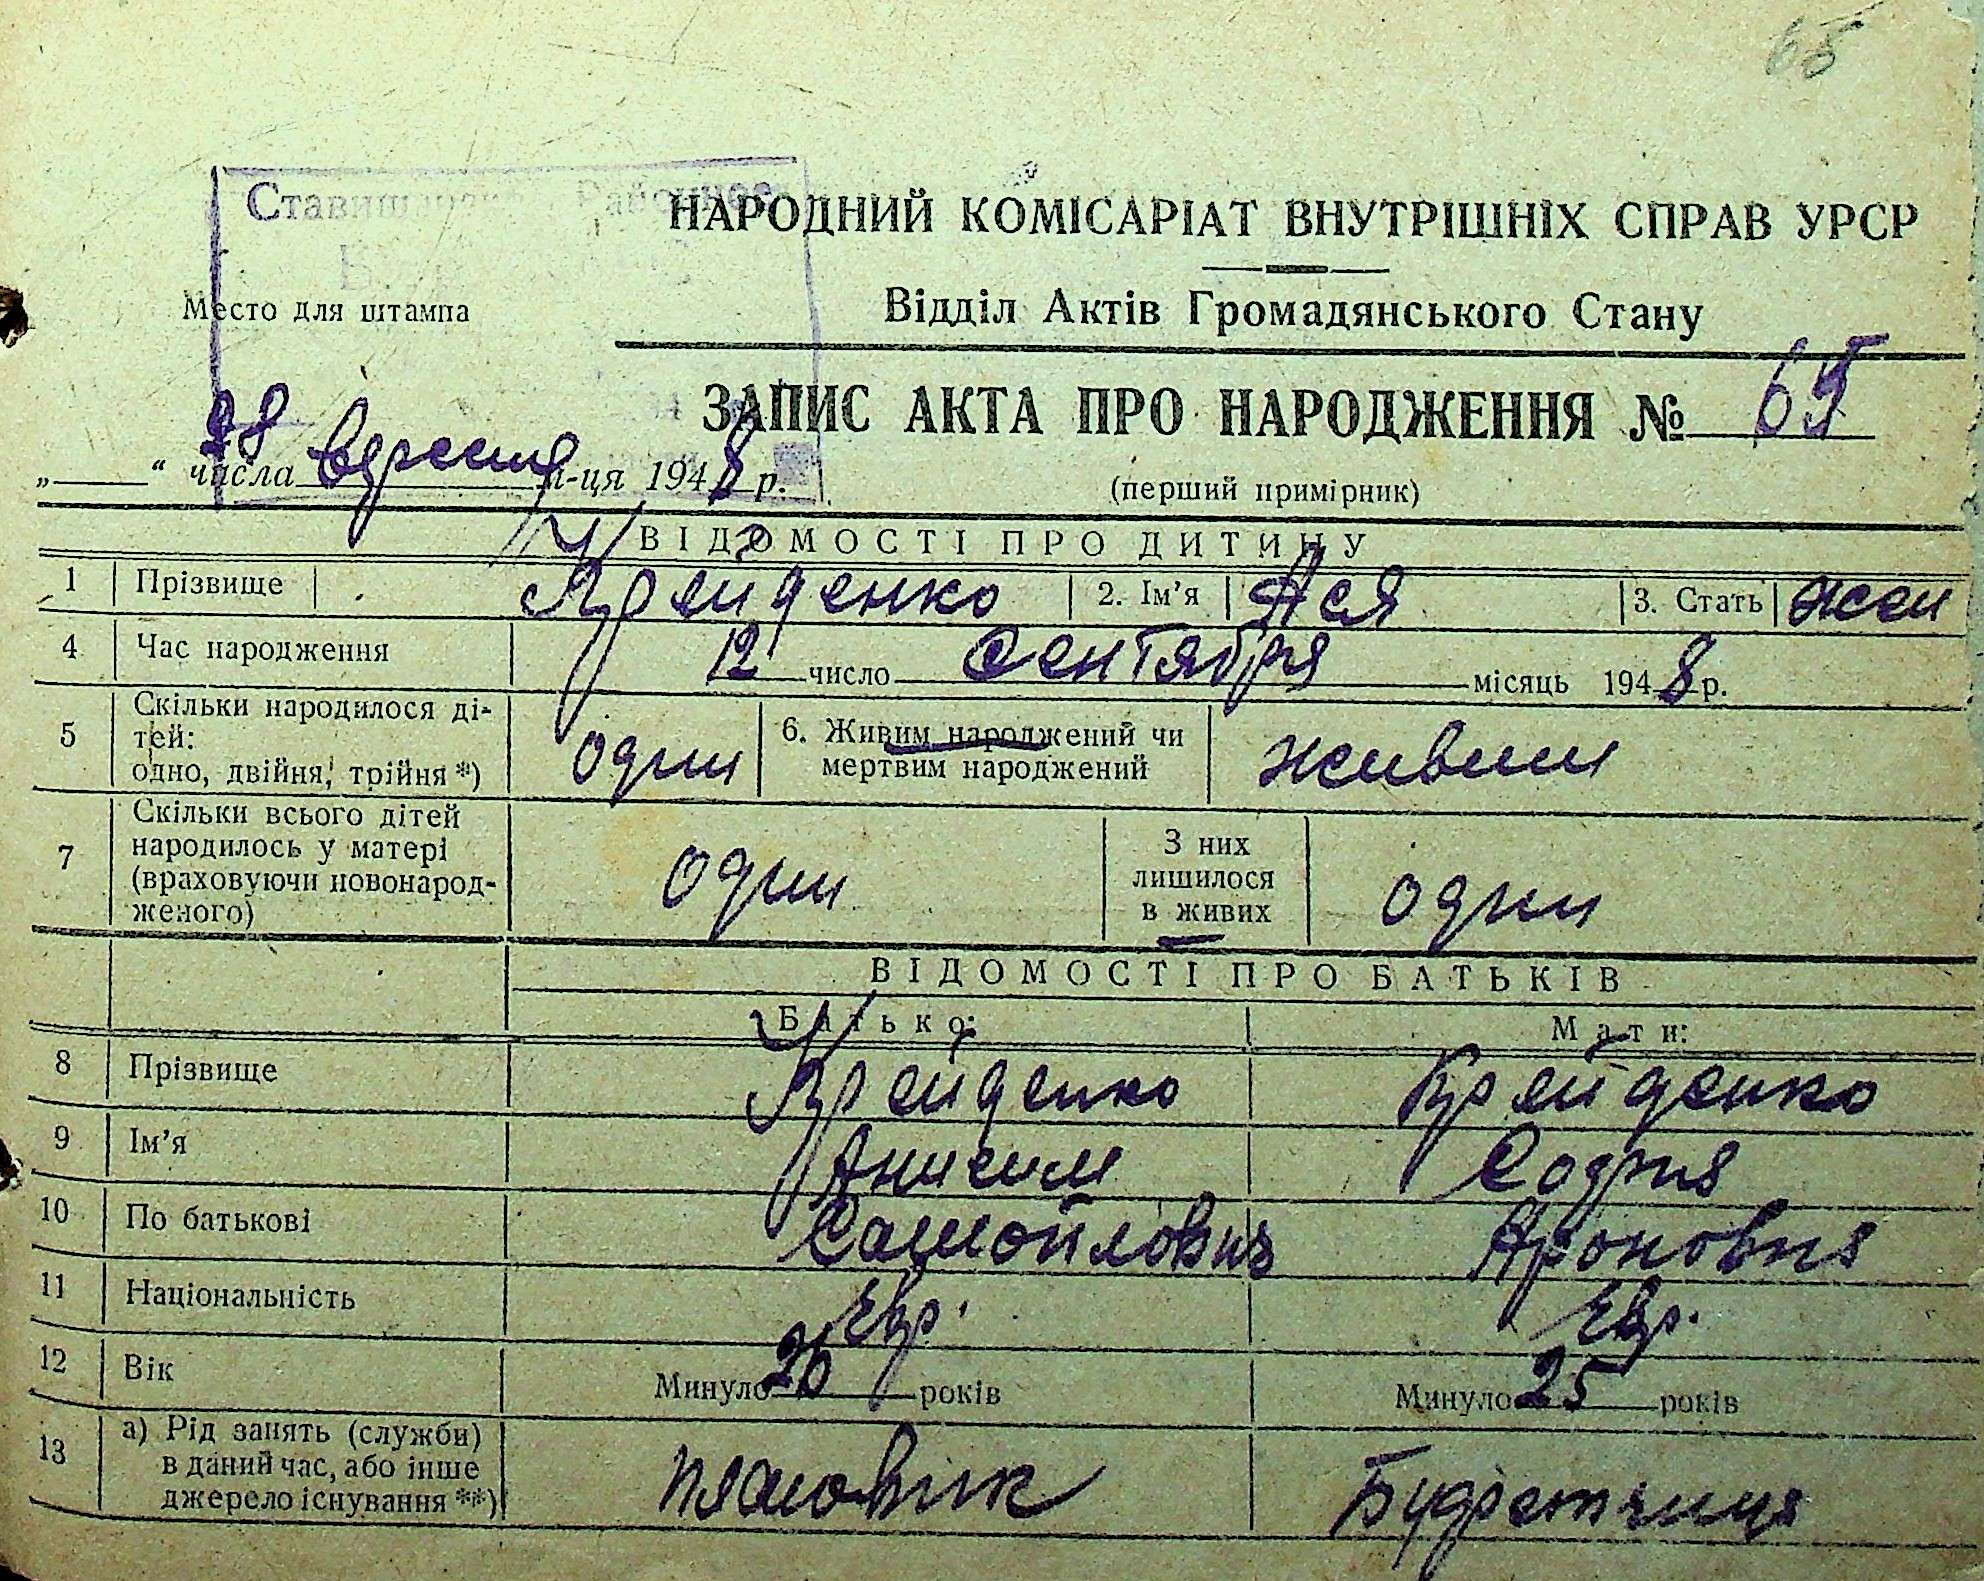 65
Районное
НАРОДНИЙ КОМІСАРІАТ ВНУТРІШНІХ СПРАВ УРСР
Место для штампа
Відділ Актів Громадянського Стану
ЗАПИС АКТА ПРО НАРОДЖЕННЯ № 65
„ “ 28 числа вересня м-ця 1948 р.
(перший примірник)
ВІДОМОСТІ ПРО ДИТИНУ
1 Прізвище Крейденко 2. Ім’я Ася 3. Стать жен
4 Час народження 12 число Сентября місяць 1948 р.
5 Скільки народилося ді-
тей:
одно, двійня, трійня *) один
6. Живим народжений чи
мертвим народжений живим
7 Скільки всього дітей
народилось у матері
(враховуючи новонарод-
женого) один
З них
лишилося
в живих один
ВІДОМОСТІ ПРО БАТЬКІВ
Батько: Мати:
8 Прізвище Крейденко Крейденко
9 Ім’я Анисим София
10 По батькові Самойлович Ароновна
11 Національність Евр. Евр.
12 Вік Минуло 26 років Минуло 25 років
13 а) Рід занять (служби)
в даний час, або інше
джерело існування **) плановик Буфетчица